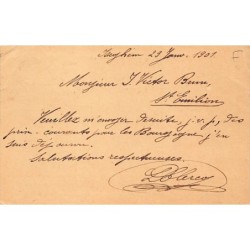 Iseghem 29 Janv. 1901.
Monsieur J. Victor Brun,
St Emilion
Veuillez m'envoyer de suite, s.v.p., des
prix-courants pour les Bourgogne, j'en
suis dépourvu.
Salutations respectueuses.
D. Clercq